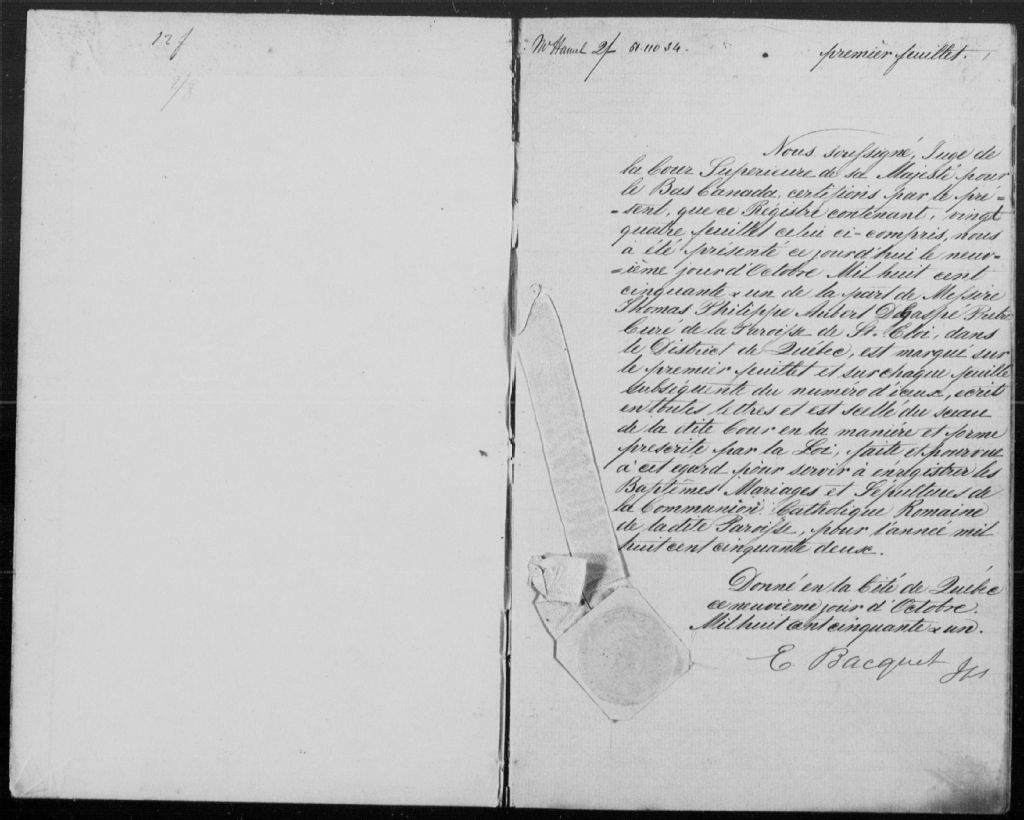 12 f
2/8
Mr Hamel 2/ 51.110 34.
premier feuillet. 1
Nous soussigné, Juge de
la Cour Superieure de sa Majesté pour
le Bas Canada, certifions par le pré=
=sent, que ce Régistre contenant, vingt
quatre feuillet celui ci-compris, nous
à été présenté ce jourd'hui le neuv-
=ième jour d'Octobre Mil huit cent
cinquante & un de la part de Messire
Thomas Philippe Aubert DeGaspé Prêtre
Curé de la Paroisse de St. Eloi, dans
le District de Québec, est marqué sur
le premier feuillet et sur chaque feuille
Subséquente du numéro d'iceux, écrit
en toutes lettres et est scellé du sceau
de la dite Cour en la manière et forme
prescrite par la Loi, faite et pourvue
à cet égard pour servir à enrégistrer les
Baptêmes Mariages et Sépultures de
la Communion Catholique Romaine
de la dite Paroisse, pour l'année mil
huit cent cinquante deux.
Donné en la Cité de Québec
ce neuvième jour d'Octobre.
Mil huit cent cinquante & un.
E Bacquet